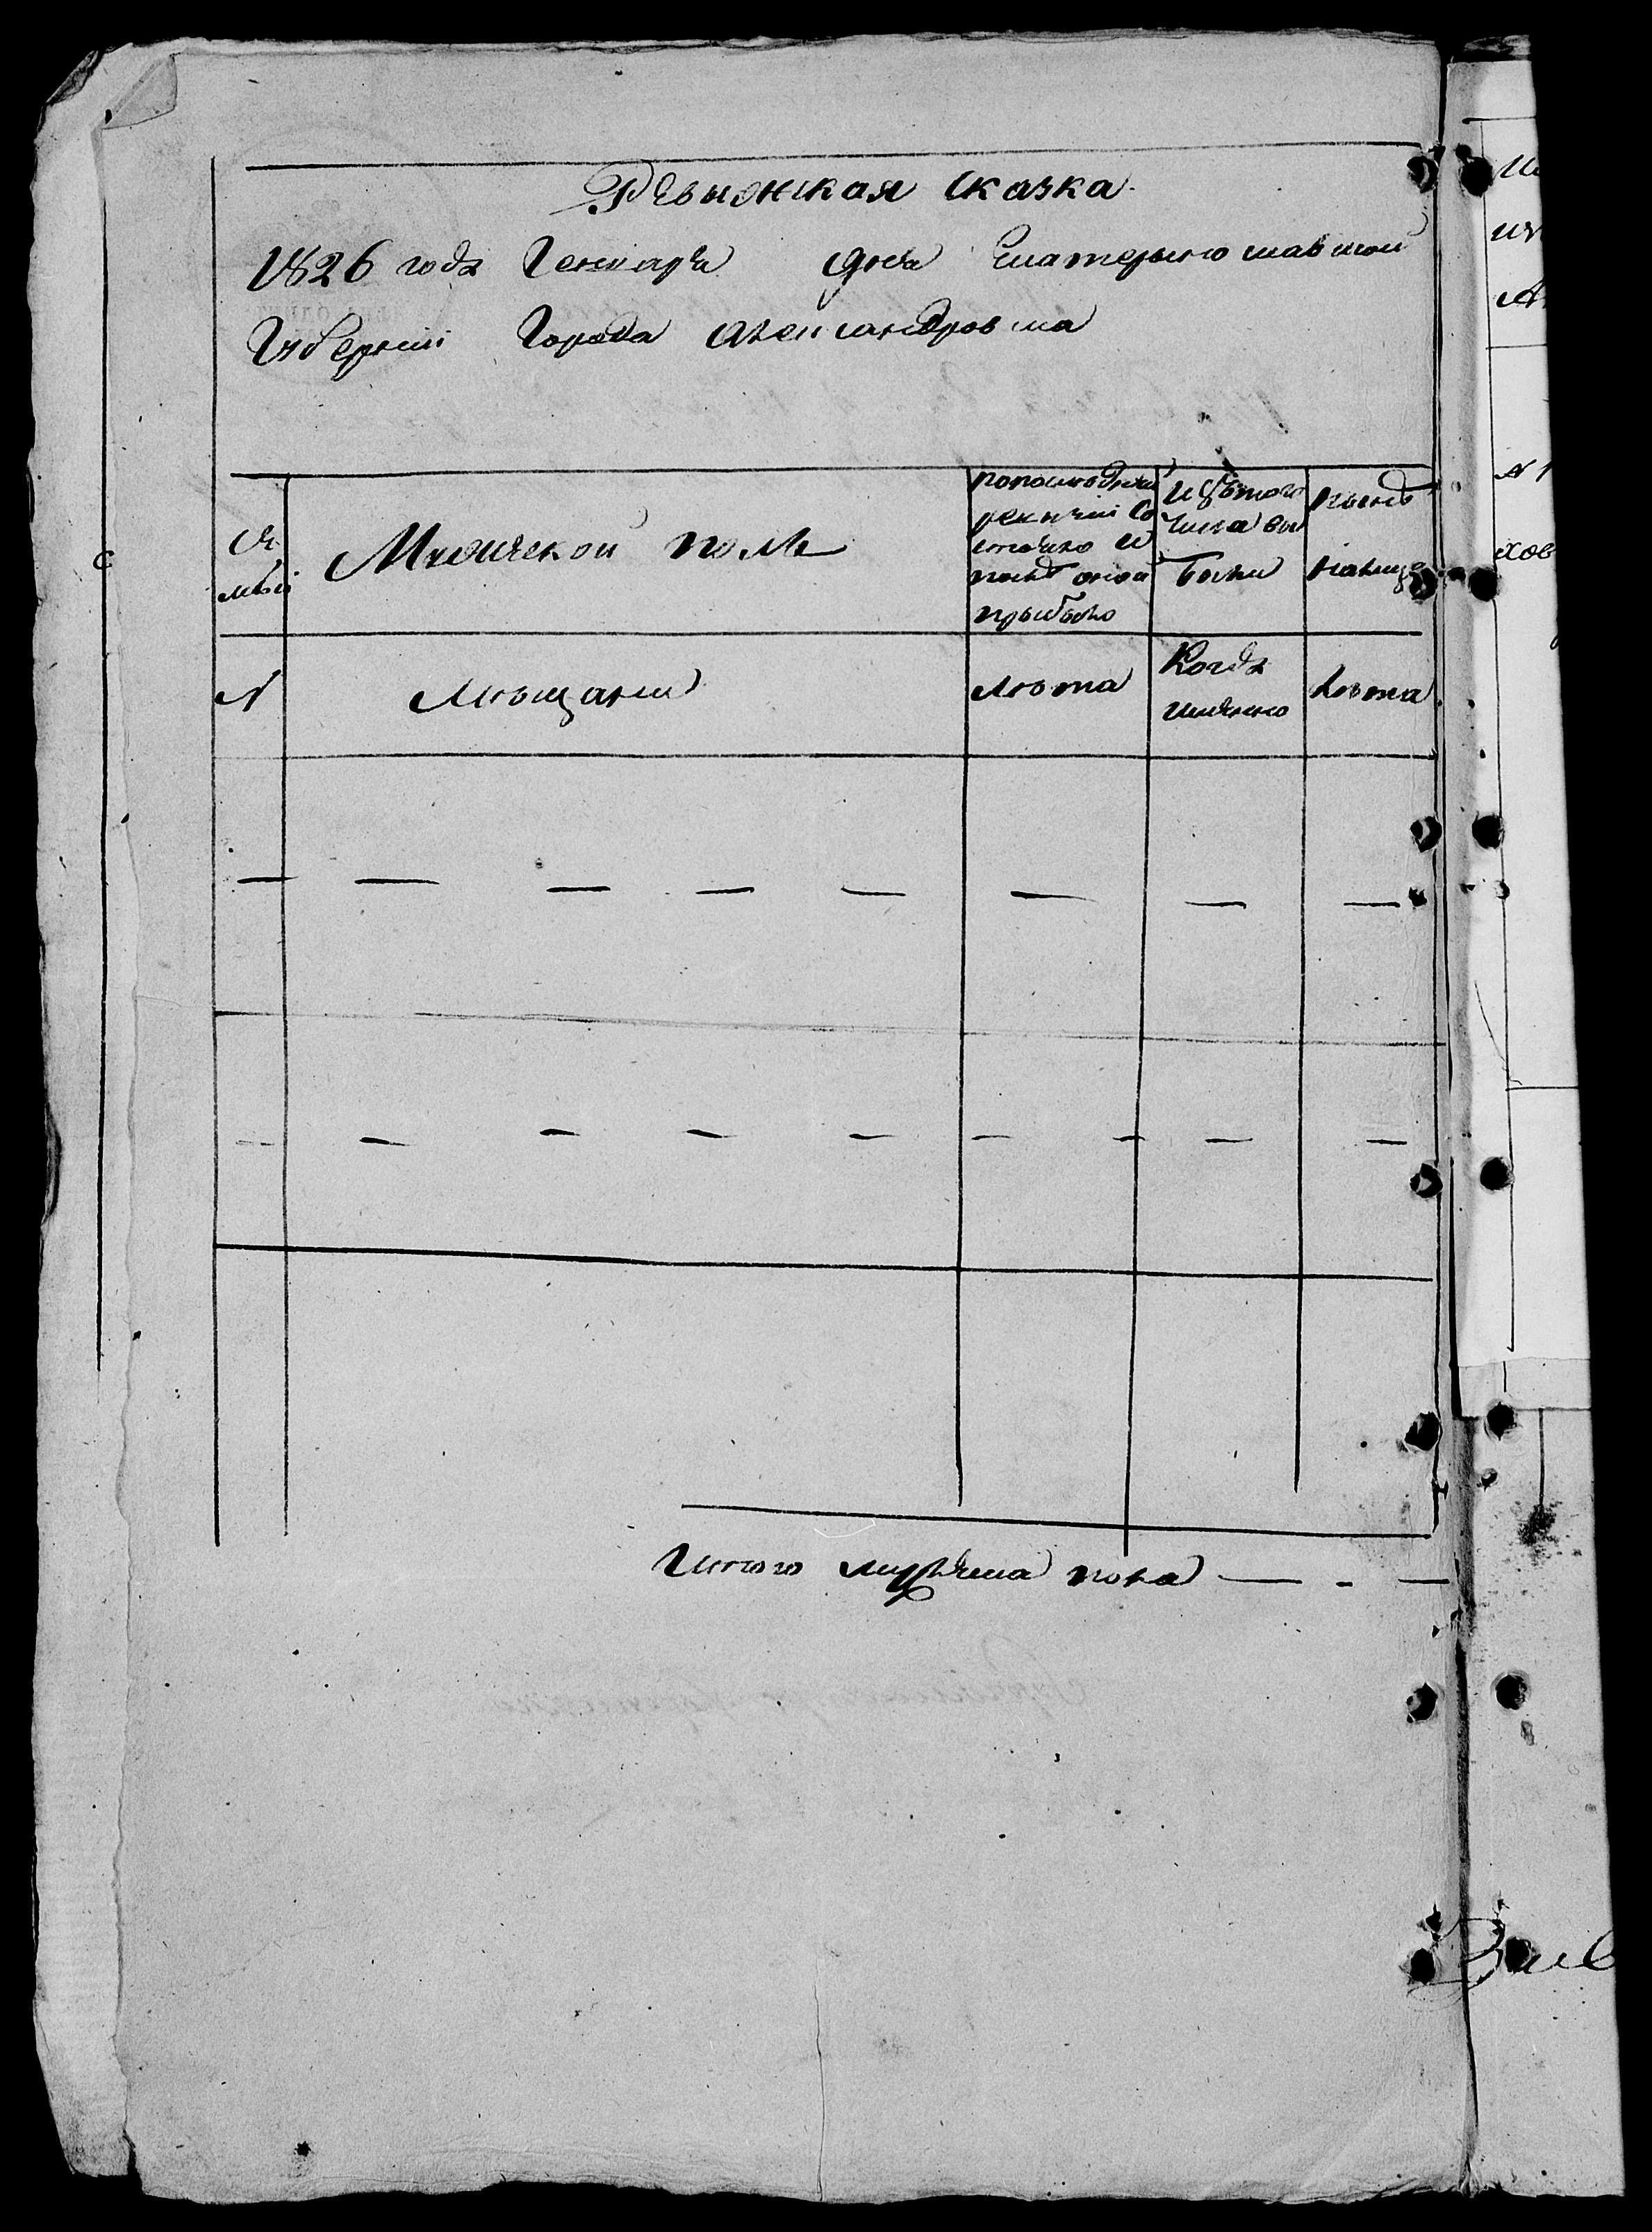 Ревыжская Сказка
1826 года Генваря дня Екатерынославской
Губернии Города Александровска
Се
мьи
Мужеской полъ
попоследней
ревизии Со
стояло и
послѣ оной
прыбыло
Изътого
Числа вы
Были
нынѣ
налице
N
Мѣщани
Лѣта
Когда
имянно
Лѣта
Итого мужеска пола — - —